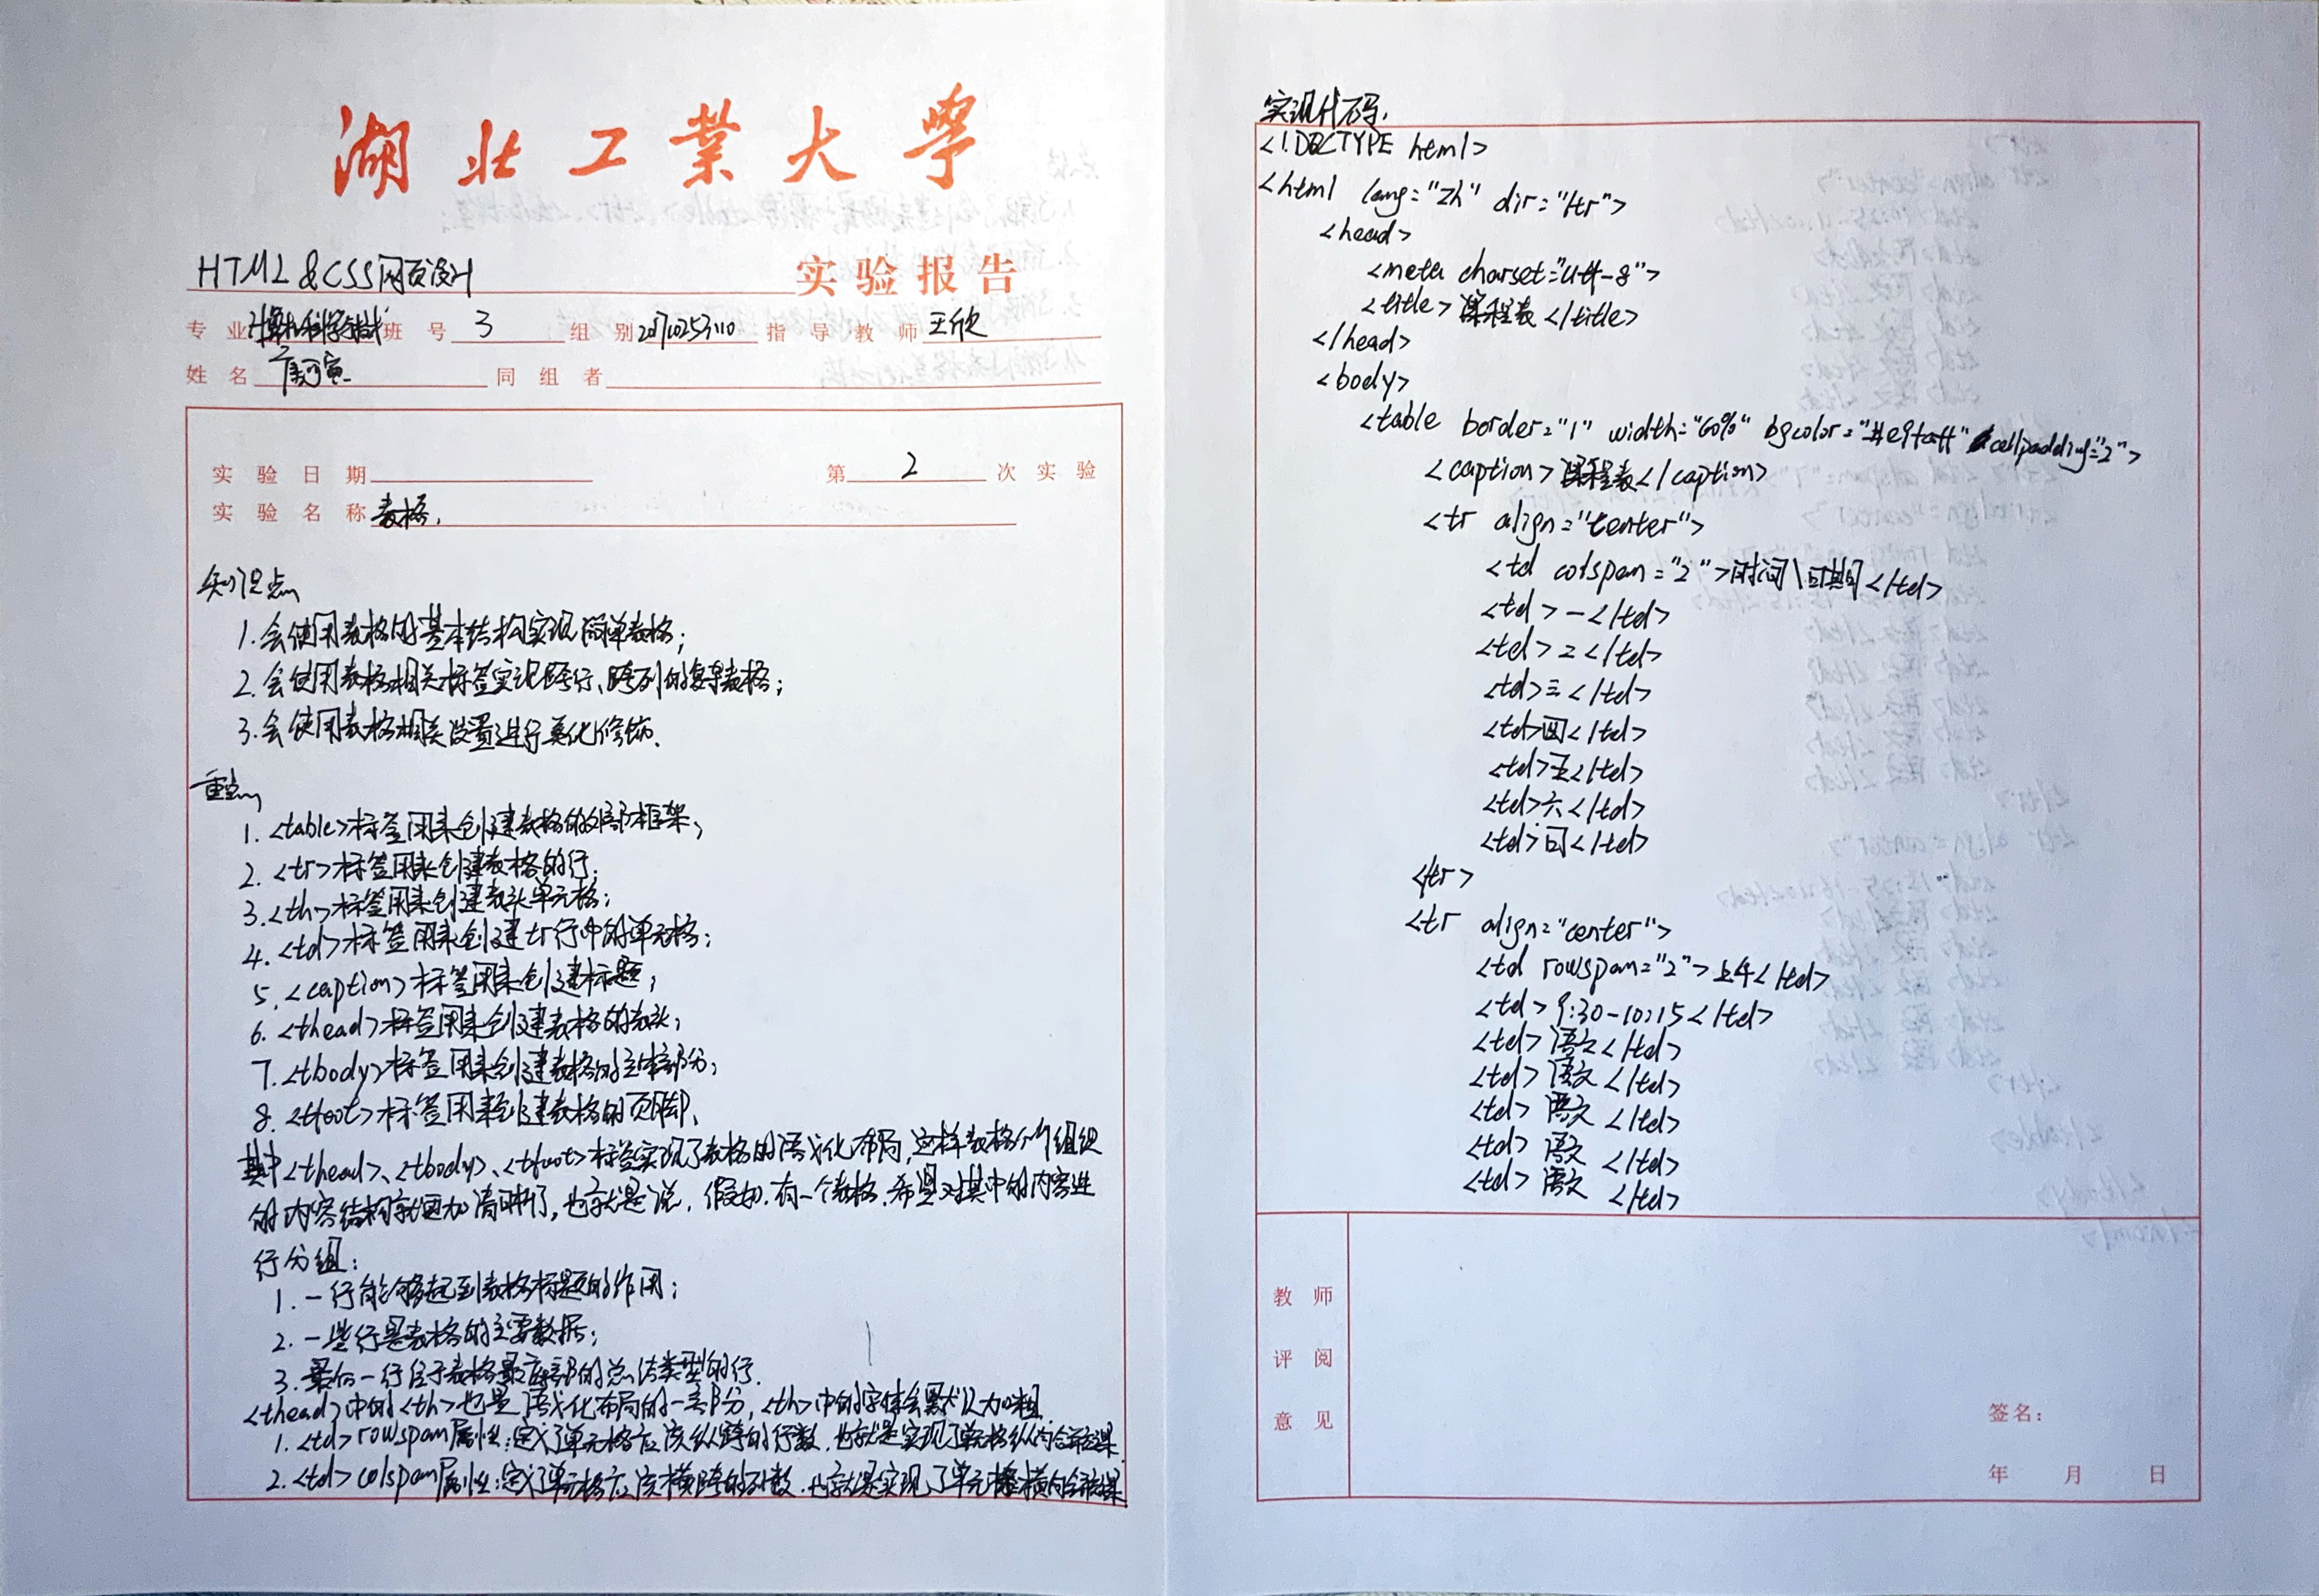 湖北工業大學
HTML&CSS网页设计 实验报告
专业 计算机科学与技术 班号 3 组别 20170253110 指导教师 王欣
姓名 同组者
实验日期 第 2 次实验
实验名称 表格.
知识点
1.会使用表格的基本结构实现简单表格;
2.会使用表格相关标签实现跨行、跨列的复杂表格;
3.会使用表格相关设置进行美化修饰.
重点
1.<table>标签用来创建表格的外部框架;
2.<tr>标签用来创建表格的行;
3.<th>标签用来创建表头单元格;
4.<td>标签用来创建tr行中的单元格;
5.<caption>标签用来创建标题;
6.<thead>标签用来创建表格的表头;
7.<tbody>标签用来创建表格的主体部分;
8.<tfoot>标签用来创建表格的页脚.
其中<thead>、<tbody>、<tfoot>标签实现了表格的语义化布局,这样表格的组织
的内容结构就更加清晰了,也就是说,假如.有一个表格.希望对其中的内容进
行分组:
1.一行能够起到表格标题的作用;
2.一些行是表格的主要数据;
3.最后一行位于表格最底部的总结类型的行.
<thead>中的<th>也是语义化布局的一部分,<th>中的字体会默认加粗.
1.<td>rowspan属性:定义了单元格应该纵跨的行数.也就是实现了单元格纵向合并效果
2.<td>colspan属性:定义了单元格应该横跨的列数.也就是实现了单元格横向合并效果
实现代码.
<!DOCTYPE html>
<html lang="zh" dir="ltr">
<head>
<meta charset="utf-8">
<title>课程表</title>
</head>
<body>
<table border="1" width="60%" bgcolor="#e9faff" cellpadding="2">
<caption>课程表</caption>
<tr align="center">
<td colspan="2">时间\日期</td>
<td>一</td>
<td>二</td>
<td>三</td>
<td>四</td>
<td>五</td>
<td>六</td>
<td>日</td>
</tr>
<tr align="center">
<td rowspan="2">上午</td>
<td>9:30-10:15</td>
<td>语文</td>
<td>语文</td>
<td>语文</td>
<td>语文</td>
<td>语文</td>
教师
评阅
意见
签名:
年 月 日